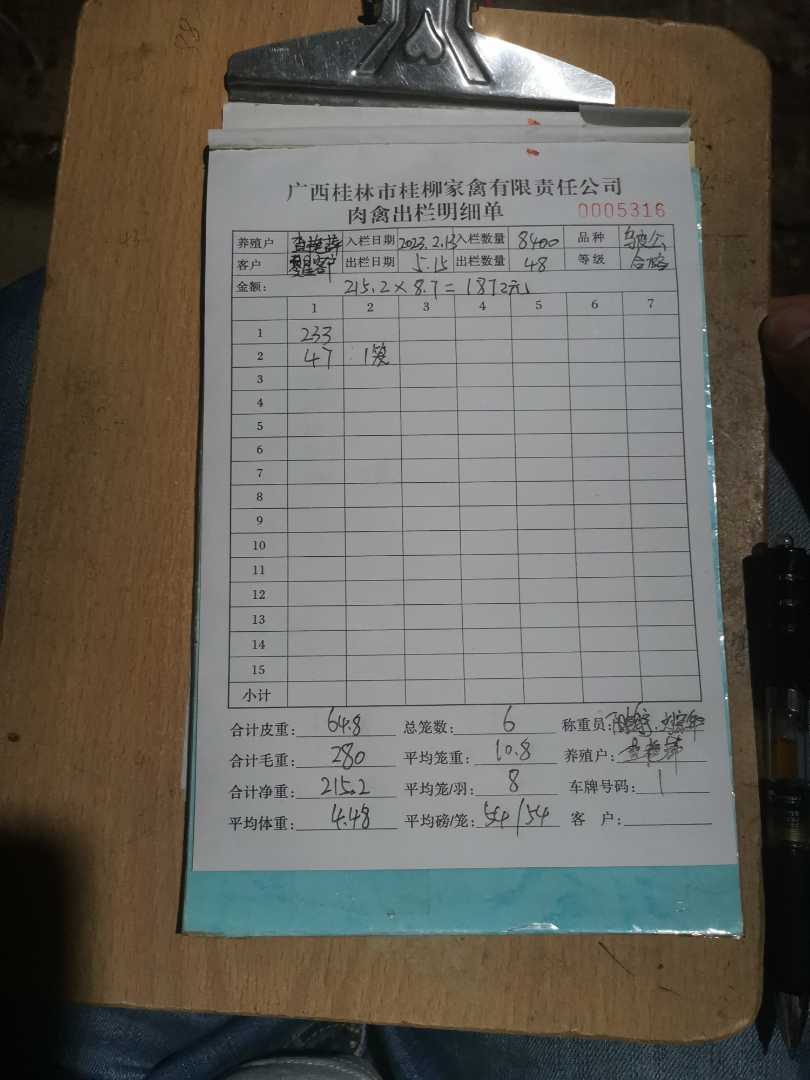 广西桂林市桂柳家禽有限责任公司
肉禽出栏明细单 0005316
养殖户 入栏日期 2023.2.13 入栏数量 8400 品种
客户 出栏日期 5.15 出栏数量 48 等级 合格
金额: 215.2×8.7=1872元
1 2 3 4 5 6 7
1 233
2 47 1笼
3
4
5
6
7
8
9
10
11
12
13
14
15
小计
合计皮重: 64.8 总笼数: 6 称重员:
合计毛重: 280 平均笼重: 10.8 养殖户:
合计净重: 215.2 平均笼/羽: 8 车牌号码: 1
平均体重: 4.48 平均磅/笼: 54/54 客 户: